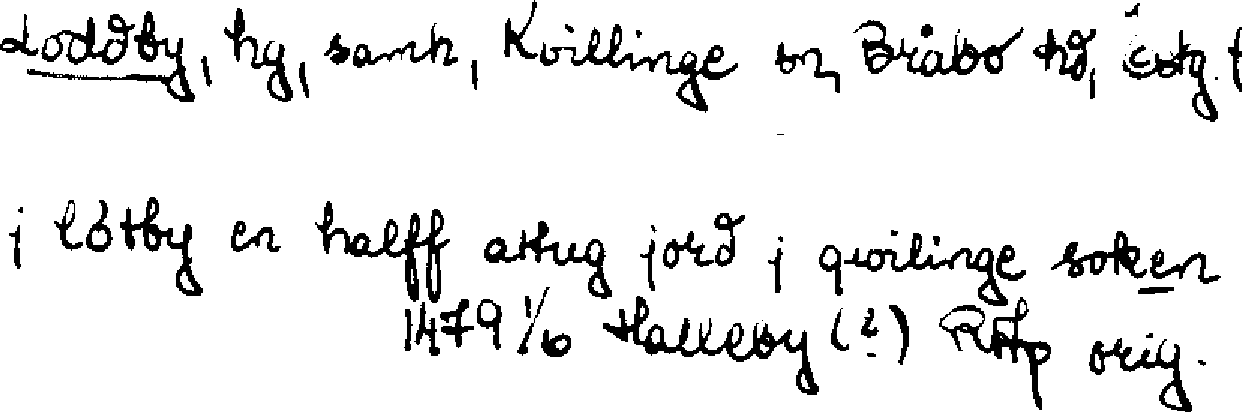 Loddby, by, samh, Kvillinge sn, Bråbo hd, Östg. l
j lótby en halff attug jord j qwilinge soken
1479 1/6 Halleby (?) RAp orig.